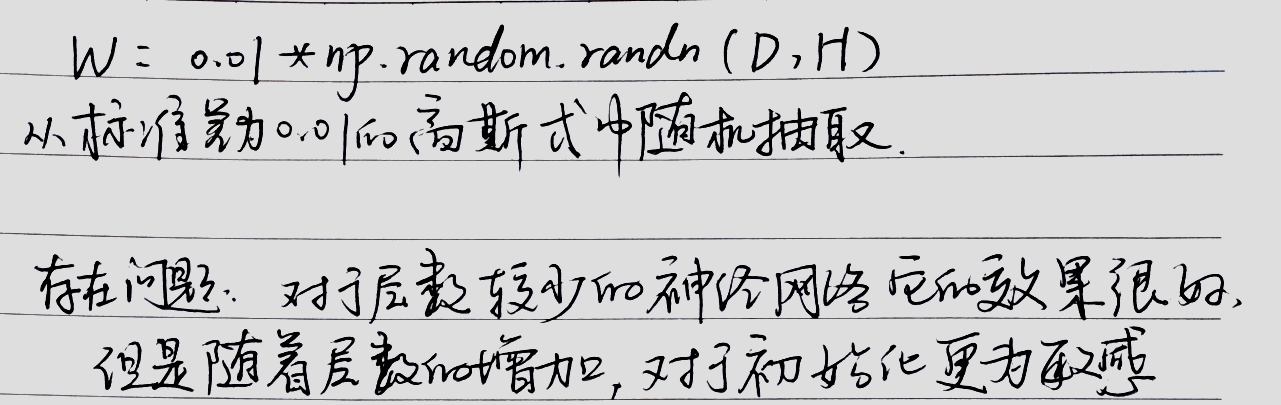 W = 0.01 * np.random.randn (D,H)
从标准差为0.01的高斯式中随机抽取.
存在问题: 对于层数较少的神经网络它的效果很好,
但是随着层数的增加,对于初始化更为敏感